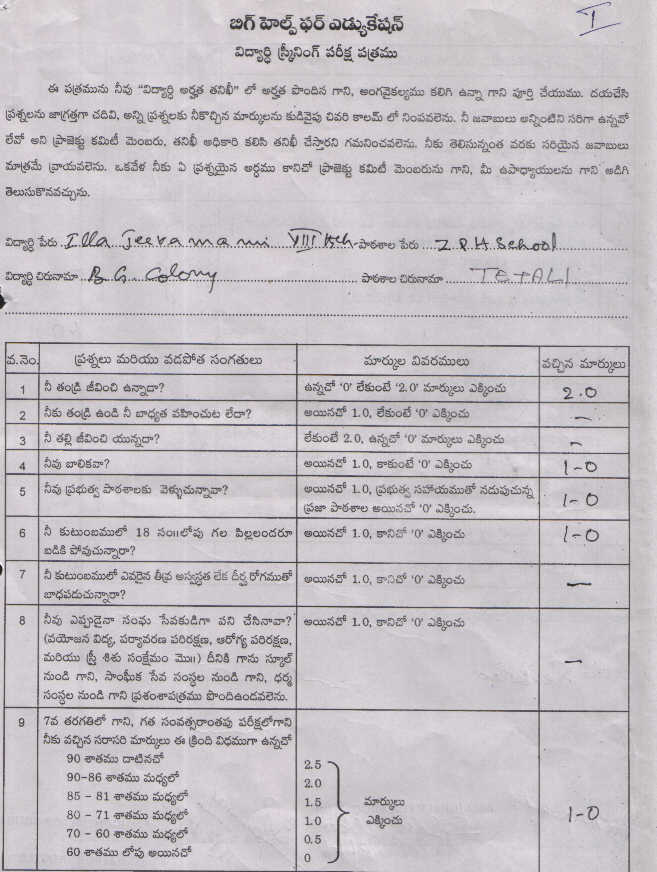 I
బిగ్ హెల్ప్ ఫర్ ఎడ్యుకేషన్
విద్యార్ధి స్క్రీనింగ్ పరీక్ష పత్రము
ఈ పత్రమును నీవు “విద్యార్ధి అర్హత తనిఖీ” లో అర్హత పొందిన గాని, అంగవైకల్యము కలిగి ఉన్నా గాని పూర్తి చేయుము. దయచేసి
ప్రశ్నలను జాగ్రత్తగా చదివి, అన్ని ప్రశ్నలకు నీకొచ్చిన మార్కులను కుడివైపు చివరి కాలమ్ లో నింపవలెను. నీ జవాబులు అన్నింటిని సరిగా ఉన్నవో
లేవో అని ప్రాజెక్టు కమిటీ మెంబరు, తనిఖీ అధికారి కలిసి తనిఖీ చేస్తారని గమనించవలెను. నీకు తెలిసున్నంత వరకు సరియైన జవాబులు
మాత్రమే వ్రాయవలెను. ఒకవేళ నీకు ఏ ప్రశ్నయైన అర్ధము కానిచో ప్రాజెక్టు కమిటీ మెంబరును గాని, మీ ఉపాధ్యాయులను గాని అడిగి
తెలుసుకొనవచ్చును.
విద్యార్ధి పేరు Illa Jeevamani VIII పాఠశాల పేరు Z P H School
విద్యార్ధి చిరునామా B.G. Colony పాఠశాల చిరునామా TETALI
వ.నెం. ప్రశ్నలు మరియు వడపోత సంగతులు మార్కుల వివరములు వచ్చిన మార్కులు
1 నీ తండ్రి జీవించి ఉన్నాడా? ఉన్నచో ‘0’ లేకుంటే ‘2.0’ మార్కులు ఎక్కించు 2.0
2 నీకు తండ్రి ఉండి నీ బాధ్యత వహించుట లేదా? అయినచో 1.0, లేకుంటే ‘0’ ఎక్కించు –
3 నీ తల్లి జీవించి యున్నదా? లేకుంటే 2.0, ఉన్నచో ‘0’ మార్కులు ఎక్కించు –
4 నీవు బాలికవా? అయినచో 1.0, కాకుంటే ‘0’ ఎక్కించు 1-0
5 నీవు ప్రభుత్వ పాఠశాలకు వెళ్ళుచున్నావా? అయినచో 1.0, ప్రభుత్వ సహాయముతో నడుపుచున్న 1-0
ప్రజా పాఠశాల అయినచో ‘0’ ఎక్కించు.
6 నీ కుటుంబములో 18 సం॥లోపు గల పిల్లలందరూ అయినచో 1.0, కానిచో ‘0’ ఎక్కించు 1-0
బడికి పోవుచున్నారా?
7 నీ కుటుంబములో ఎవరైన తీవ్ర అస్వస్థత లేక దీర్ఘ రోగముతో అయినచో 1.0, కానిచో ‘0’ ఎక్కించు –
బాధపడుచున్నారా?
8 నీవు ఎప్పుడైనా సంఘ సేవకుడిగా పని చేసినావా? అయినచో 1.0, కానిచో ‘0’ ఎక్కించు –
(వయోజన విద్య, పర్యావరణ పరిరక్షణ, ఆరోగ్య పరిరక్షణ,
మరియు స్త్రీ శిశు సంక్షేమం మొ॥) దీనికి గాను స్కూల్
నుండి గాని, సాంఘీక సేవ సంస్థల నుండి గాని, ధర్మ
సంస్థల నుండి గాని ప్రశంశాపత్రము పొందిఉండవలెను.
9 7వ తరగతిలో గాని, గత సంవత్సరాంతపు పరీక్షలోగాని
నీకు వచ్చిన సరాసరి మార్కులు ఈ క్రింది విధముగా ఉన్నచో
90 శాతము దాటినచో 2.5
90-86 శాతము మధ్యలో 2.0
85 – 81 శాతము మధ్యలో 1.5 మార్కులు
80 – 71 శాతము మధ్యలో 1.0 ఎక్కించు 1-0
70 – 60 శాతము మధ్యలో 0.5
60 శాతము లోపు అయినచో 0